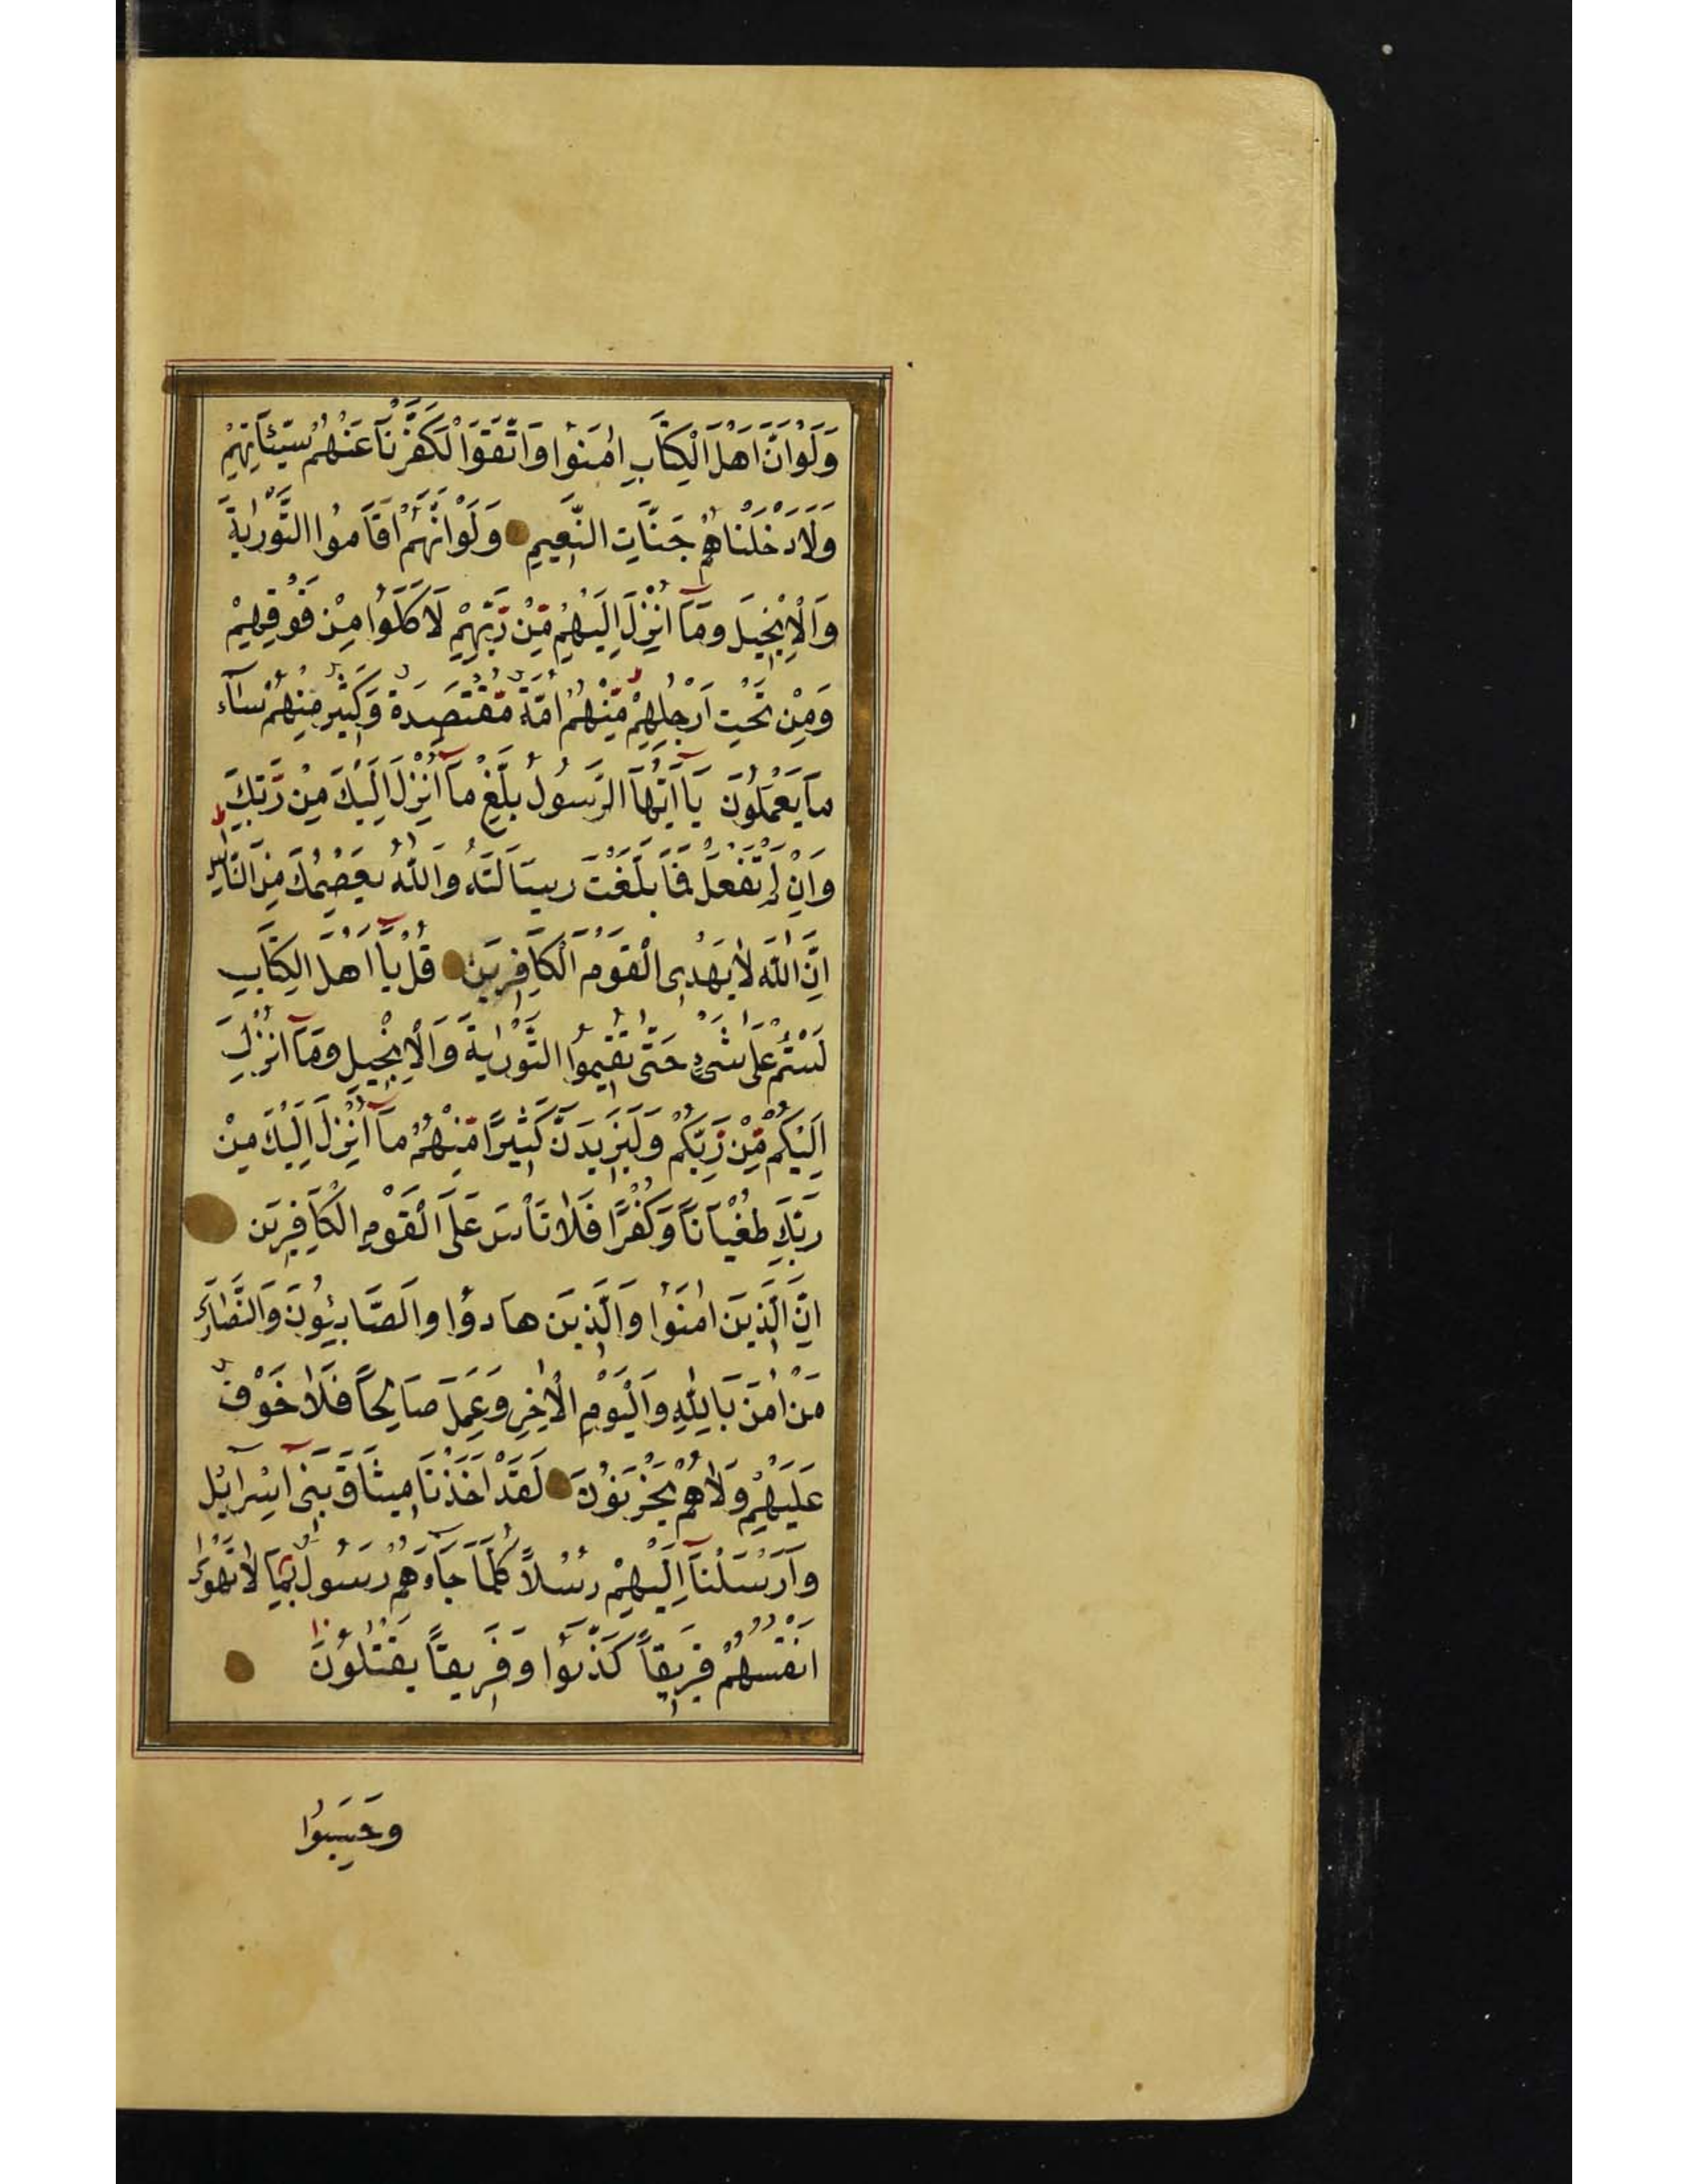 وَلَوْ اَنَّ اَهْلَ الْكِتَابِ اٰمَنُوا وَاتَّقَوْا لَكَفَّرْنَا عَنْهُمْ سَيِّئَاتِهِمْ
وَلَاَدْخَلْنَاهُمْ جَنَّاتِ النَّعِيمِ وَلَوْ اَنَّهُمْ اَقَامُوا التَّوْرٰيةَ
وَالْاِنْجِيلَ وَمَآ اُنْزِلَ اِلَيْهِمْ مِنْ رَبِّهِمْ لَاَكَلُوا مِنْ فَوْقِهِمْ
وَمِنْ تَحْتِ اَرْجُلِهِمْ مِنْهُمْ اُمَّةٌ مُقْتَصِدَةٌ وَكَثِيرٌ مِنْهُمْ سَآءَ
مَا يَعْمَلُونَ يَآ اَيُّهَا الرَّسُولُ بَلِّغْ مَآ اُنْزِلَ اِلَيْكَ مِنْ رَبِّكَ
وَاِنْ لَمْ تَفْعَلْ فَمَا بَلَّغْتَ رِسَالَتَهُ وَاللّٰهُ يَعْصِمُكَ مِنَ النَّاسِ
اِنَّ اللّٰهَ لَا يَهْدِى الْقَوْمَ الْكَافِرِينَ قُلْ يَآ اَهْلَ الْكِتَابِ
لَسْتُمْ عَلٰى شَىْءٍ حَتّٰى تُقِيمُوا التَّوْرٰيةَ وَالْاِنْجِيلَ وَمَآ اُنْزِلَ
اِلَيْكُمْ مِنْ رَبِّكُمْ وَلَيَزِيدَنَّ كَثِيرًا مِنْهُمْ مَآ اُنْزِلَ اِلَيْكَ مِنْ
رَبِّكَ طُغْيَانًا وَكُفْرًا فَلَا تَأْسَ عَلَى الْقَوْمِ الْكَافِرِينَ
اِنَّ الَّذِينَ اٰمَنُوا وَالَّذِينَ هَادُوا وَالصَّابِئُونَ وَالنَّصَارٰى
مَنْ اٰمَنَ بِاللّٰهِ وَالْيَوْمِ الْاٰخِرِ وَعَمِلَ صَالِحًا فَلَا خَوْفٌ
عَلَيْهِمْ وَلَا هُمْ يَحْزَنُونَ لَقَدْ اَخَذْنَا مِيثَاقَ بَنِىٓ اِسْرَآئِلَ
وَاَرْسَلْنَآ اِلَيْهِمْ رُسُلًا كُلَّمَا جَآءَهُمْ رَسُولٌ بِمَا لَا تَهْوٰى
اَنْفُسُهُمْ فَرِيقًا كَذَّبُوا وَفَرِيقًا يَقْتُلُونَ
وَحَسِبُوا